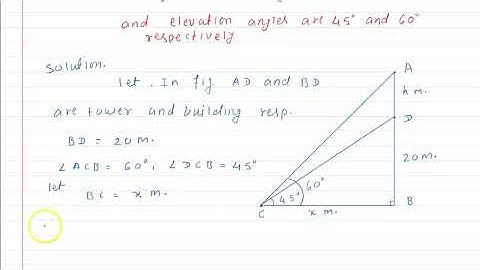 and elevation angles are 45° and 60°
respectively
Solution.
let . In fig AD and BD
are tower and building resp.
BD = 20 m.
∠ACB = 60°, ∠DCB = 45°
let
BC = x m.
A
h m.
D
20 m.
60°
45°
C
x m.
B